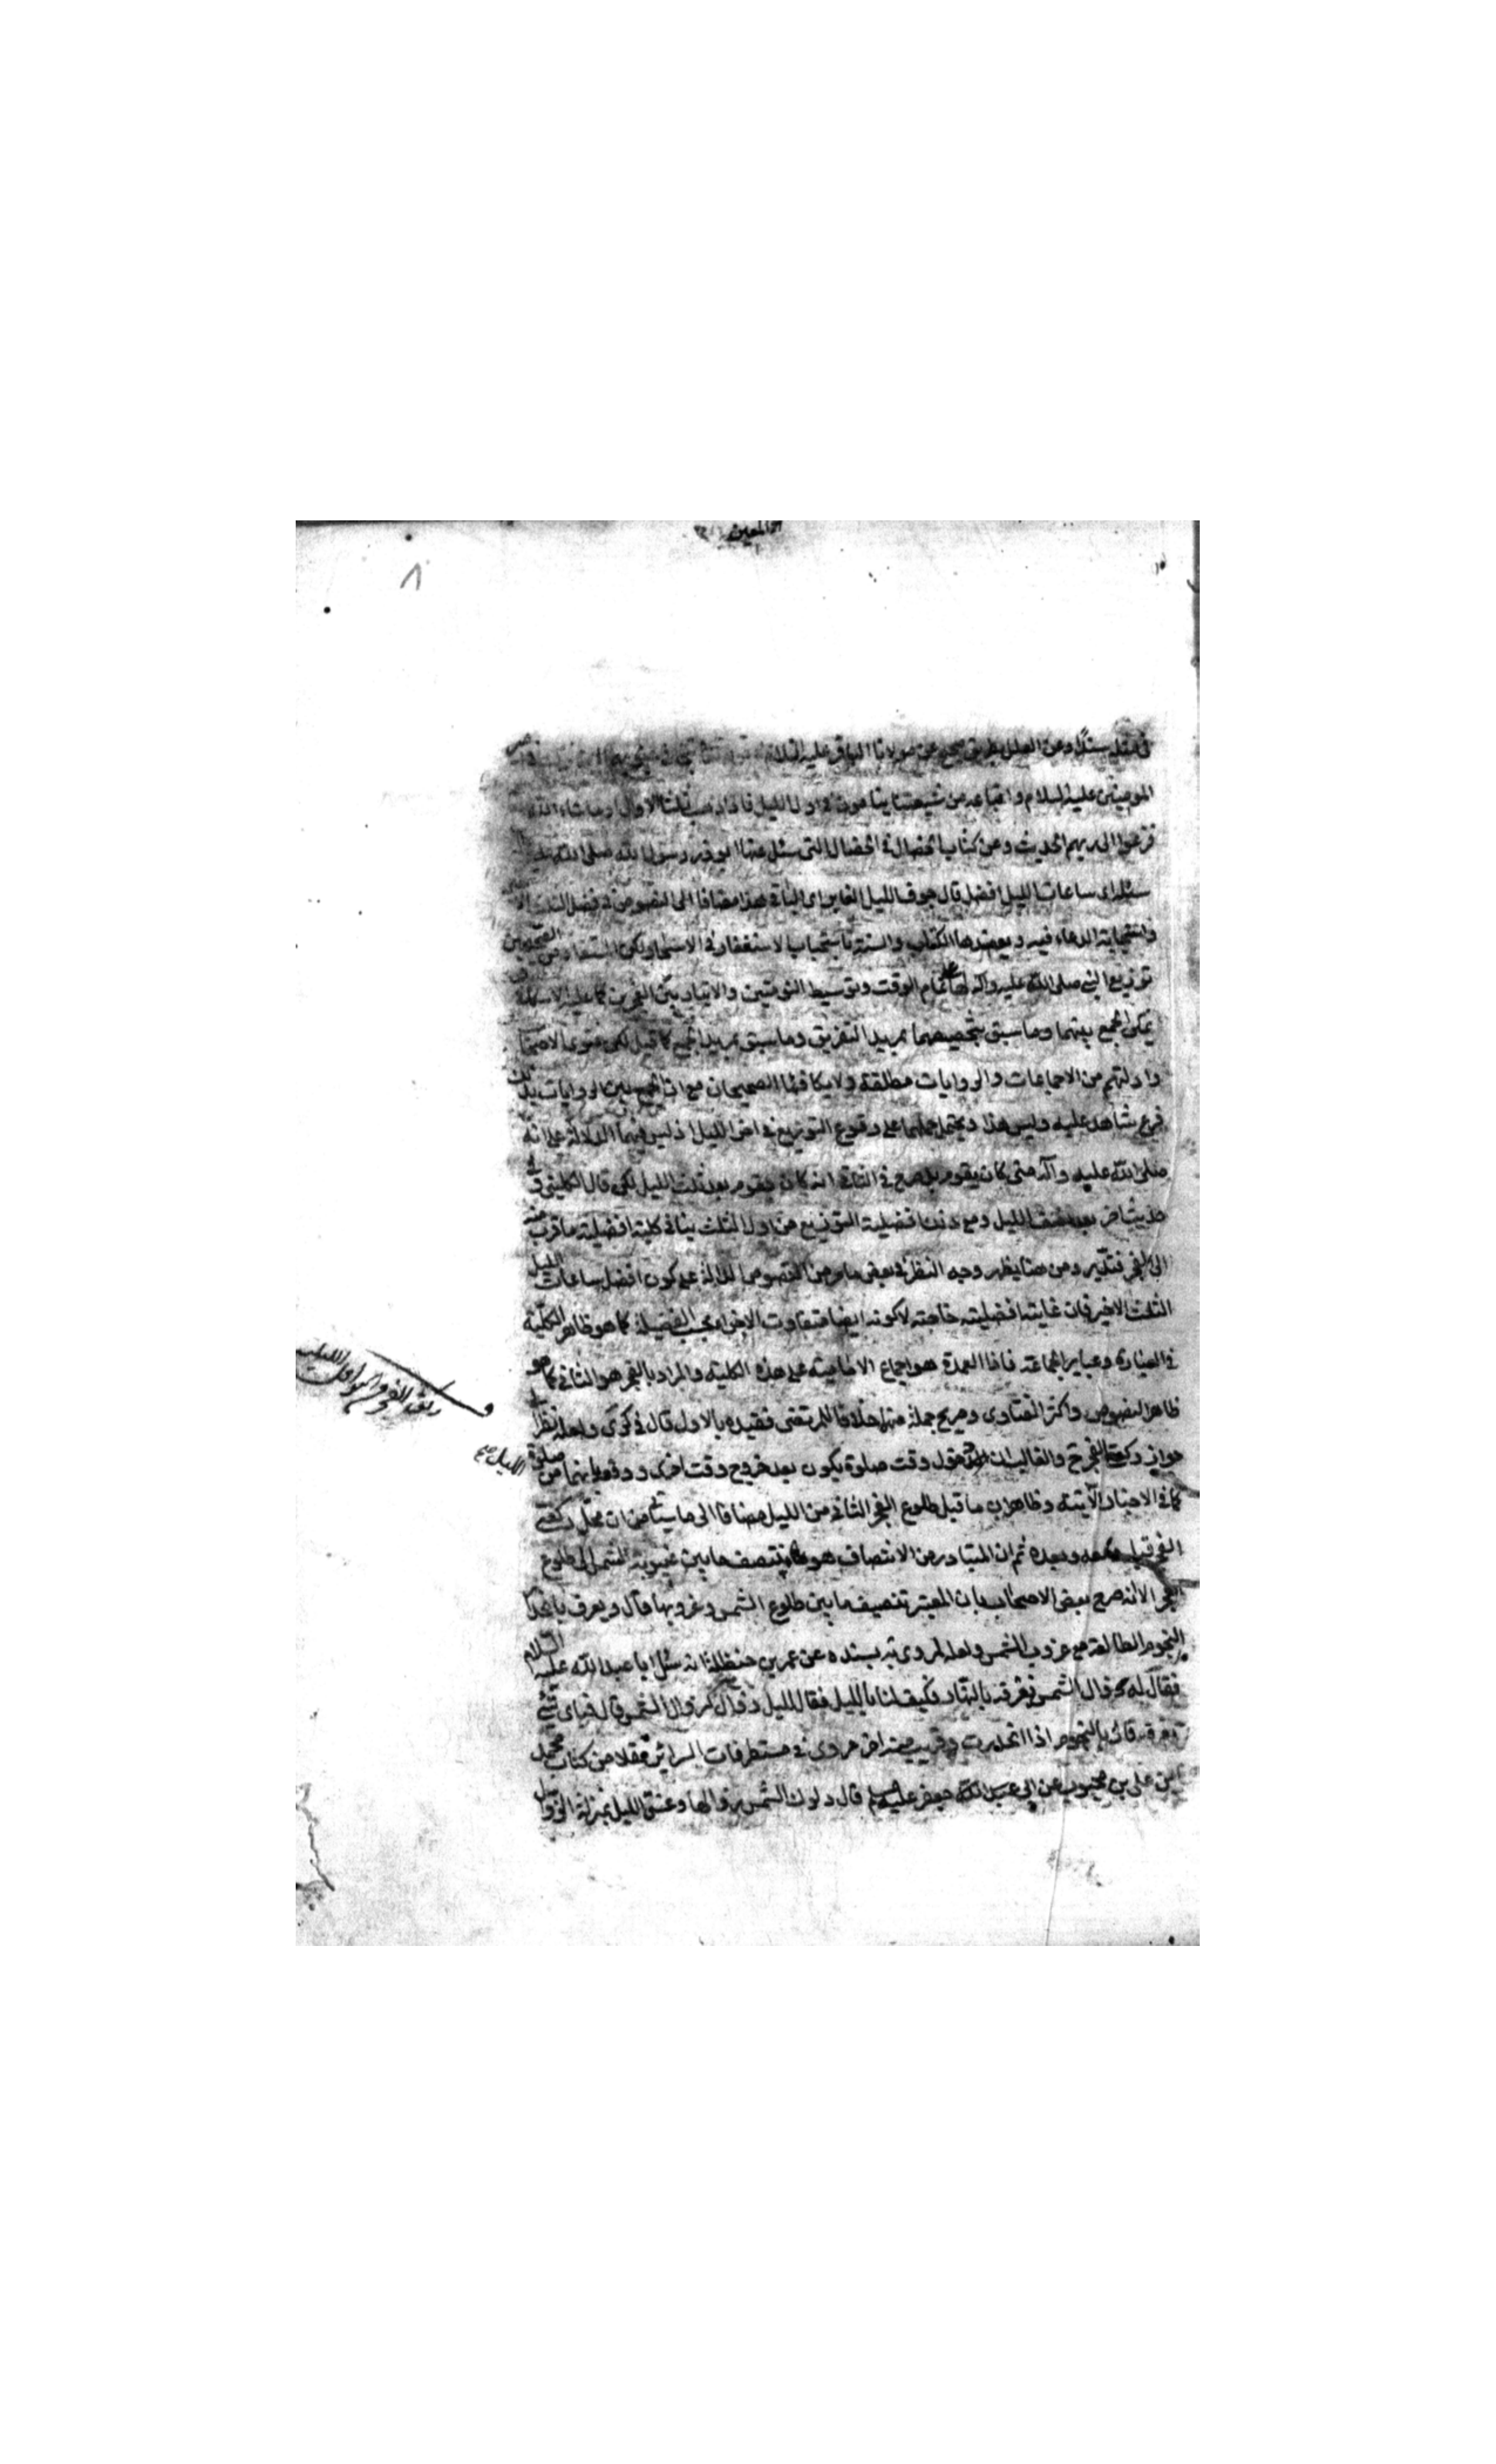 المعين
٨
في مثله سندا وعن العلل بطريق صحيح عن مولانا الباقر عليه السلام
المومنين عليه السلام واتباعه من شيعتنا ينامون في اول الليل فاذا ذهب ثلثا الاول او ما شاء الله
فزعوا الى ربهم الحديث وعن كتاب الخصال في الخصال التي سئل عنها ابو ذر رسول الله صلى الله عليه
سئله اي ساعات الليل افضل قال جوف الليل الغابر اي الباقي هذا مضافا الى النصوص في فضل الثلث الا
واستجابة الدعاء فيه ويعضدها الكتاب والسنة باستحباب الاستغفار في الاسحار ولكن المستفاد من الصحيحين
توزيع النبي صلى الله عليه وآله لها على تمام الوقت وتوسيط النومتين والايتار بين الفجرين كما عليه الاسكافي
يمكن الجمع بينهما وما سبق بتخصيصهما بمريد التفريق وما سبق بمريد الجمع كما قيل لكن فتوى الاصحاب
وادلتهم من الاجماعات والروايات مطلقة ولا يكافئها الصحيحان مع ان الجمع بين الروايات بذلك
فرع شاهد عليه وليس هذا ويحتمل حملهما على وقوع التوزيع في اخر الليل اذ ليس فيهما الدلالة على انه
صلى الله عليه وآله متى كان يقوم بل صرح في الثاني انه كان يقوم بعد ثلث الليل لكن قال الكليني وفي
حديث اخر بعد نصف الليل ومع ذلك افضلية التوزيع من اول الثلث ينافي كلية افضلية ما قرب منه
الى الفجر فتدبر ومن هنا يظهر وجه النظر في بعض ما مر من النصوص الدالة على كون افضل ساعات الليل
الثلث الاخير فان غايته افضليته خاصة لا كونه ايضا متفاوت الاجزاء بحسب الفضيلة كما هو ظاهر الكلية
في العبارة وعبارٔ الجماعة فاذا العمدة هو اجماع الامامية على هذه الكلية والمراد بالفجر هو الثاني كما هو
ظاهر النصوص واكثر الفتاوى وصريح جملة منها خلافا للمرتضى فقيده بالاول قال في كرى ولعله نظر الى
جواز ركعتي الفجر ح والغالب ان دخول وقت صلوة يكون بعد خروج وقت اخرى ودفع بانهما من صلوة الليل صح
كما في الاخبار الآتية وظاهر ان ما قبل طلوع الفجر الثاني من الليل مضافا الى ما سيأتي من ان محل ركعتي
الفجر قبله ومعه وبعده ثم ان المتبادر من الانتصاف هو منتصف ما بين غيبوبة الشمس الى طلوع
الفجر الا انه صرح بعض الاصحاب بان المعتبر تنصيف ما بين طلوع الشمس وغروبها قال ويعرف بانحدار
النجوم الطالعة مع غروب الشمس ولعله لمروي يه بسنده عن عمر بن حنظلة انه سئل ابا عبد الله عليه السلام
فقال له زوال الشمس نعرفه بالنهار فكيف لنا بالليل فقال لليل زوال كزوال الشمس قال فباي شئ
نعرفه قال بالنجوم اذا انحدرت وقريب منه اخر مروي في مستطرفات السرائر نقلا من كتاب محمد
ابن علي بن محبوب عن ابي عبد الله جعفر عليه السلام قال دلوك الشمس زوالها وغسق الليل بمنزلة الزوال